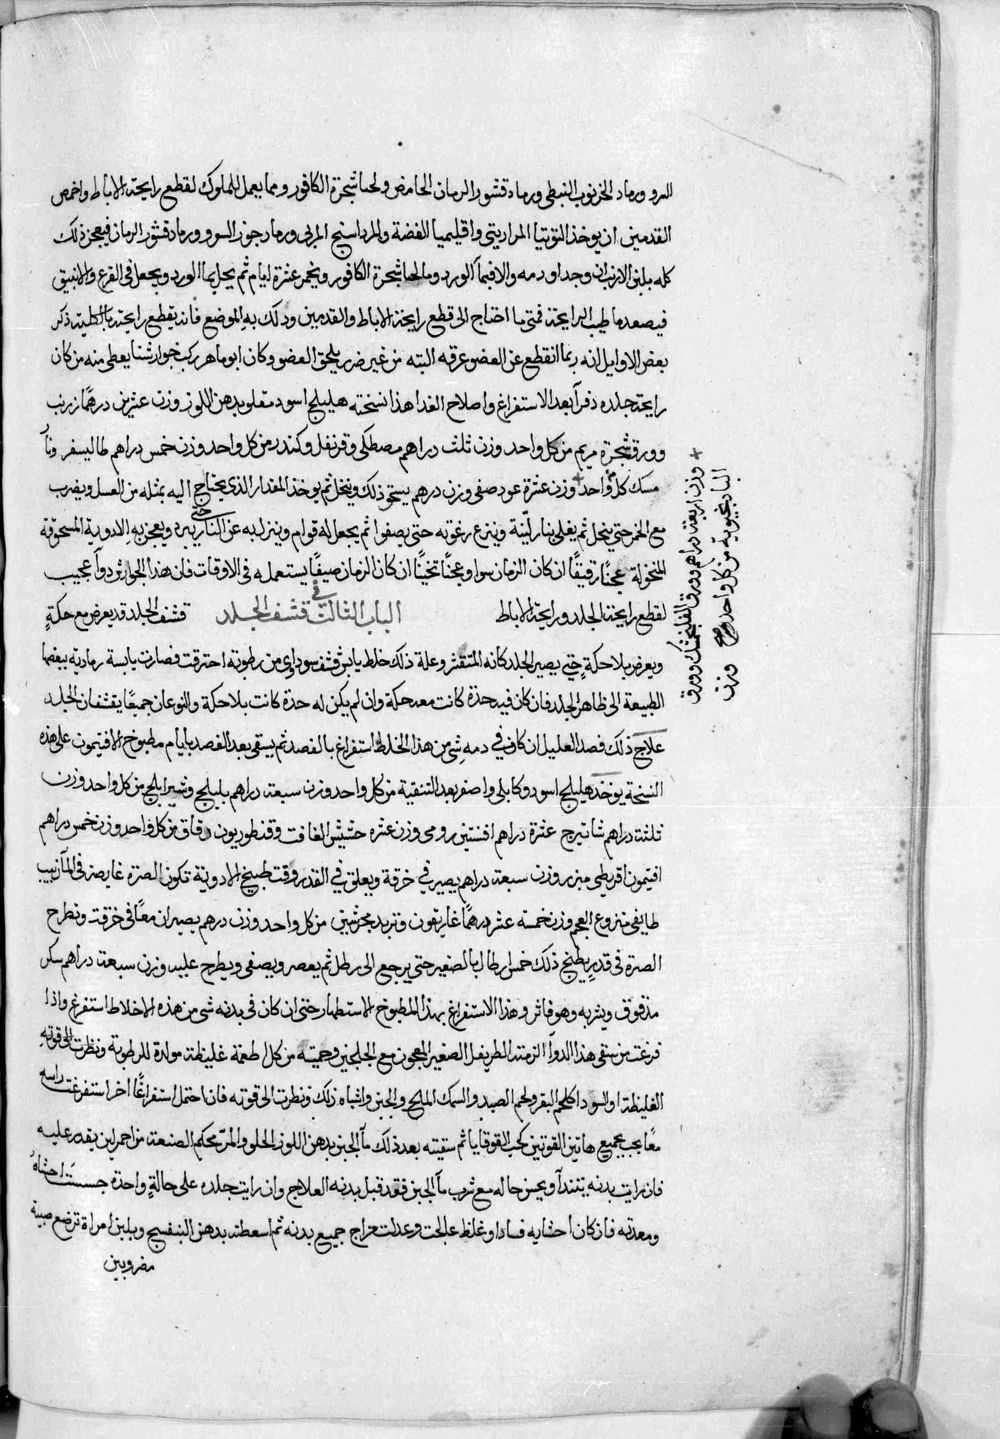 السرو ورماد الخرنوب النبطى ورماد قشور الرمان الحامض ولحا شجرة الكافور ومما يعمل للملوك لقطع رايحة الاباط واخمص
القدمين ان يوخذ التوتيا المرازيبى واقليميا الفضة والمرداسنج المربى ورماد جوز السرو ورماد قشور الرمان فيعجن ذلك
كله بلبن الاتن ان وجد او دمه والا فبماء الورد وما لحا شجرة الكافور ويخمر عشرة ايام ثم يحل بما الورد ويجعل فى القرع والانبيق
فيصعد ما طيب الرايحة فمتى ما احتاج الى قطع رايحة الاباط والقدمين ودلك به الموضع فانه يقطع رايحته بالكلية ذكر
بعض الاوايل انه ربما انقطع عن العضو عرقه البتة من غير ضرر يلحق العضو وكان ابو ماهر يركب جوارشنا يعطى منه من كان
رايحة جلده ذفرا بعد الاستفراغ واصلاح الغذا هذا نسخته هليلج اسود مقلو بدهن اللوز وزن عشرين درهما زرنب
وورق شجرة مريم من كل واحد وزن ثلث دراهم مصطكى وقرنفل وكندر من كل واحد وزن خمس دراهم طاليسفر
مسك كل واحد وزن عشرة عود صفى وزن درهم يسحق ذلك وينخل ثم يوخذ المقدار الذى يحتاج اليه بمثله من العسل ويضرب
مع الخمر حتى ينحل ثم يغلى بنار لينة وينزع رغوته حتى يصفوا ثم يجعل له قوام وينزل به عن النار حتى يبرد ويعجن به الادوية المسحوقة
المنخولة عجنا رقيقا ان كان الزمان سوا وعجنا ثخينا ان كان الزمان صيفا يستعمله فى الاوقات فان هذا الجوارشن دوا عجيب
لقطع رايحة الجلد ورايحة الاباط الباب الثالث فى قشف الجلد قشف الجلد قد يعرض مع حكة
ويعرض بلا حكة حتى يصير الجلد كانه المتقشر وعلة ذلك خلط يابس قشف سوداوى من رطوبة احترقت فصارت يابسة رمادية ببعضها
الطبيعة الى ظاهر الجلد فان كان فيه حدة كانت معه حكة وان لم يكن له حدة كانت بلا حكة والنوعان جميعا يقشفان الجلد
علاج ذلك فصد العليل ان كان فى دمه شى من هذا الخلط استفراغ بالفصد ثم يسقى بعد الفصد بايام مطبوخ الافتيمون على هذه
النسخة يوخذ هليلج اسود وكابلى واصفر بعد التنقية من كل واحد وزن سبعة دراهم بليلج وشير املج من كل واحد وزن
ثلثة دراهم شاتيرج عشرة دراهم افسنتين رومى وزن عشرة حشيش الغافت وقنطوريون دقاق من كل واحد وزن خمس دراهم
افتيمون اقريطى مبزر وزن سبعة دراهم يصير فى خرقة ويعلق فى القدر وقت طبيخ الادوية تكون الصرة غايصة فى الماء زبيب
طايفى منزوع العجم وزن خمسة عشر درهما غاريقون وتربد مجرشين من كل واحد وزن درهم يصيران معا فى خرقة وتطرح
الصرة فى قدر يطبخ ذلك خمس ارطال بالصغير حتى يرجع الى رطل ثم يعصر ويصفى ويطرح عليه وزن سبعة دراهم سكر
مدقوق ويشربه وهو فاتر وهذا الاستفراغ بهذا المطبوخ الاستظهار حتى ان كان فى بدنه شى من هذه الاخلاط استفرغ واذا
فرغت من سقى هذا الدوا الزمته الطريفل الصغير المعجون مع الجلنجبين وحميته من كل اطعمة غليظة مولدة للرطوبة ونظرت الى قوته
الغليظة او السودا كلحم البقر ولحم الصيد والسمك المليح والجبن واشباه ذلك ونظرت الى قوته فان احتمل استفراغا اخر استفرغت راسه
معا بحب يجمع هاتين القوتين كحب القوقايا ثم سقيته بعد ذلك ما الجبن بدهن اللوز الحلو والمر محكم الصنعة من احمر لبن يقدر عليه
فان رايت بدنه يتندا ويحسن حاله مع شرب ما الجبن فقد قبل بدنه العلاج وان رايت جلده على حالة واحدة جسست احشاه
ومعدته فان كان احشايه فسادا وغلظ عالجت وعدلت مزاج جميع بدنه ثم اسعطته بدهن البنفسج وبلبن امراة ترضع صبية
مضروبين
وزن اربعة دراهم وورق الفلنجمشك وورق
البادنجبوية من كل واحد وزن